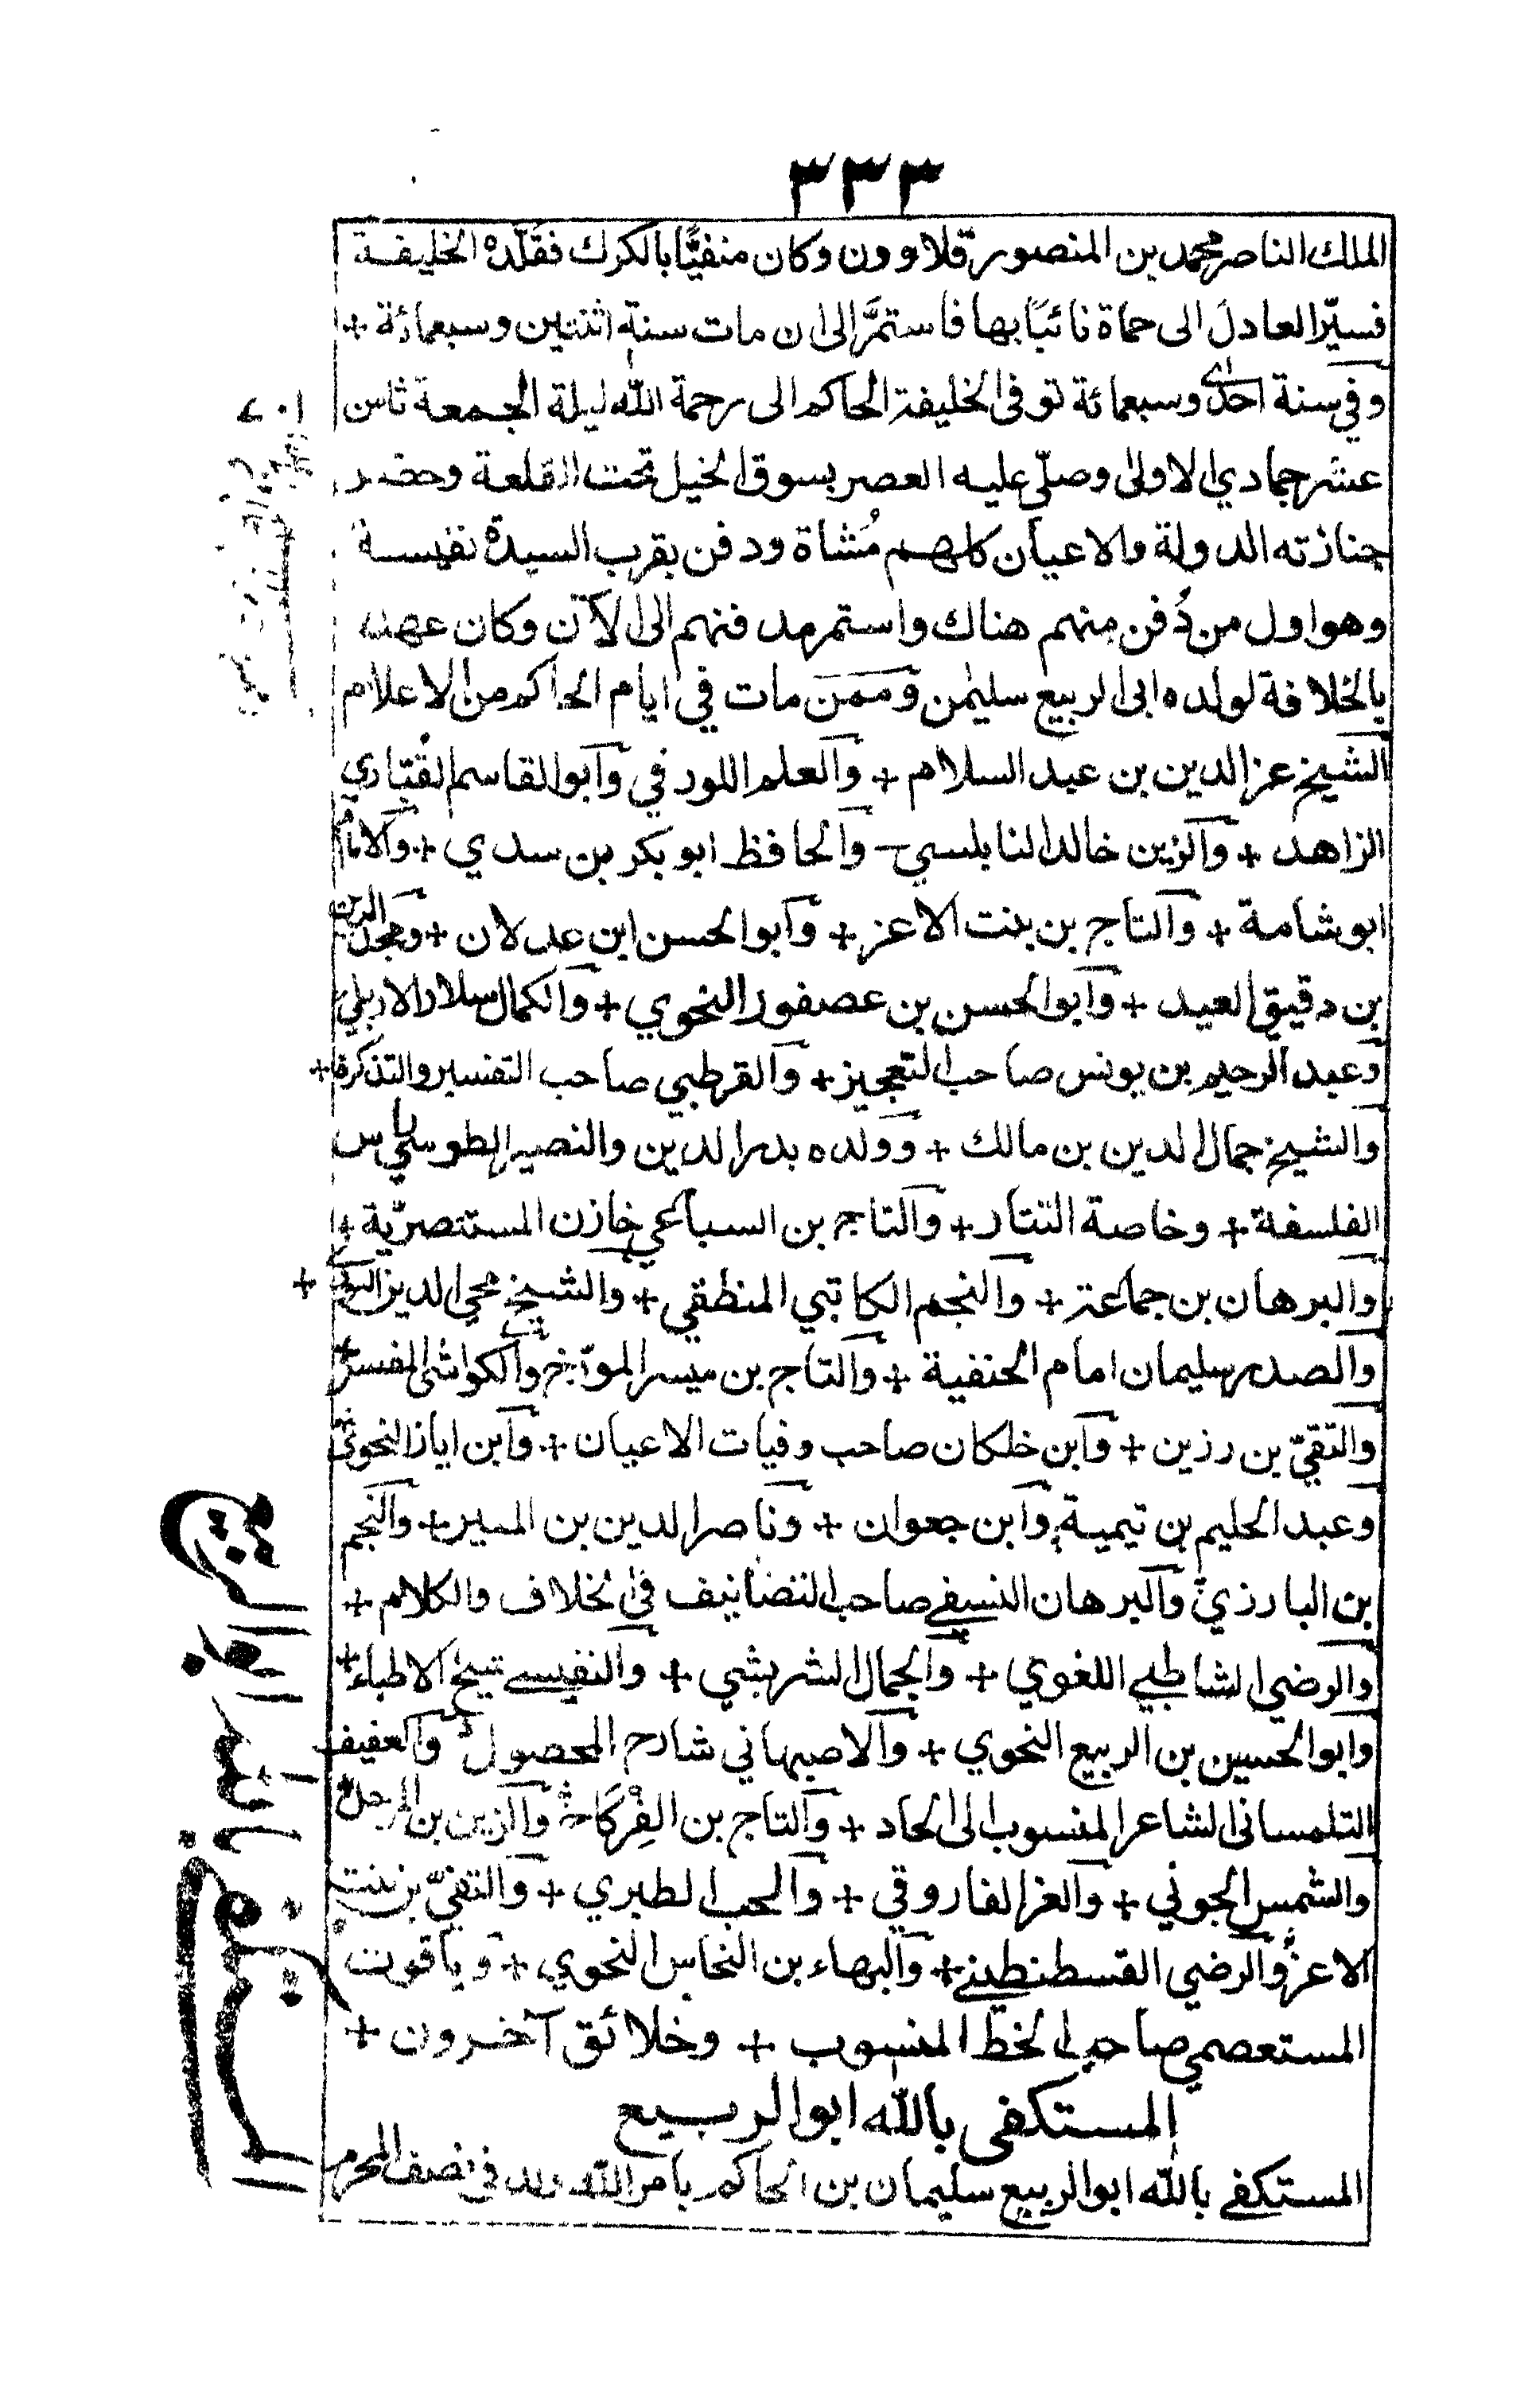 ٣٣٣
الملك الناصر محمد بن المنصور قلاوون وكان منفيًّا بالكرك فقلّده الخليفة
فسيّر العادل الى حماة نائبًا بها فاستمرَّ الى ان مات سنة اثنتين وسبعمائة +
وفي سنة احدى وسبعمائة توفى الخليفة الحاكم الى رحمة الله ليلة الجمعة ثامن
عشر جمادي الاولى وصلّي عليه العصر بسوق الخيل تحت القلعة وحضر
جنازته الدولة والاعيان كلهم مُشاة ودفن بقرب السيدة نفيسة
وهو اول من دُفن منهم هناك واستمر مدفنهم الى الآن وكان عهد
بالخلافة لولده ابى الربيع سليمن وممن مات في ايام الحاكم من الاعلام
الشيخ عز الدين بن عبد السلام + والعلم اللورفي وابو القاسم القُبّاري
الزاهد + والزين خالد النابلسي والحافظ ابو بكر بن سدي + والامام
ابو شامة + والتاج بن بنت الاعز + وابو الحسن ابن عدلان + ومجد الدين
بن دقيق العيد + وابو الحسن بن عصفور النحوي + والكمال سلار الاربلي
وعبد الرحيم بن يونس صاحب التعجيز + والقرطبي صاحب التفسير والتذكرة +
والشيخ جمال الدين بن مالك + وولده بدر الدين والنصير الطوسي راس
الفلسفة + وخاصة التتار + والتاج بن السباعي خازن المستنصريّة +
والبرهان بن جماعة + والنجم الكاتبي المنطقي + والشيخ محي الدين النووي +
والصدر سليمان امام الحنفية + والتاج بن ميسر المورّخ والكواشى المفسر +
والتقيّ بن رزين + وابن خلكان صاحب وفيات الاعيان + وابن اياز النحويّ
وعبد الحليم بن تيمية وابن جعوان + وناصر الدين بن المنير + والنجم
بن البارزيّ والبرهان النسفي صاحب التصانيف في الخلاف والكلام +
والرضي الشاطبي اللغوي + والجمال الشريشي + والنفيسي شيخ الاطباء +
وابو الحسين بن الربيع النحوي + والاصبهاني شارح المحصول والعفيف
التلمسانى الشاعر المنسوب الى الحاد + والتاج بن الفِرْكَاح والزين بن المرحل +
والشمس الجوني + والعز الفاروقي + والمحب الطبري + والتقيّ بن بنت
الاعز والرضي القسطنطيني + والبهاء بن النحاس النحوي + وياقوت
المستعصمي صاحب الخط المنسوب + وخلائق آخرون +
المستكفى بالله ابو الربيع
المستكفي بالله ابو الربيع سليمان بن الحاكم بامر الله ولد في نصف المحرم
٧٠١
المستكفى بالله ابو الربيع